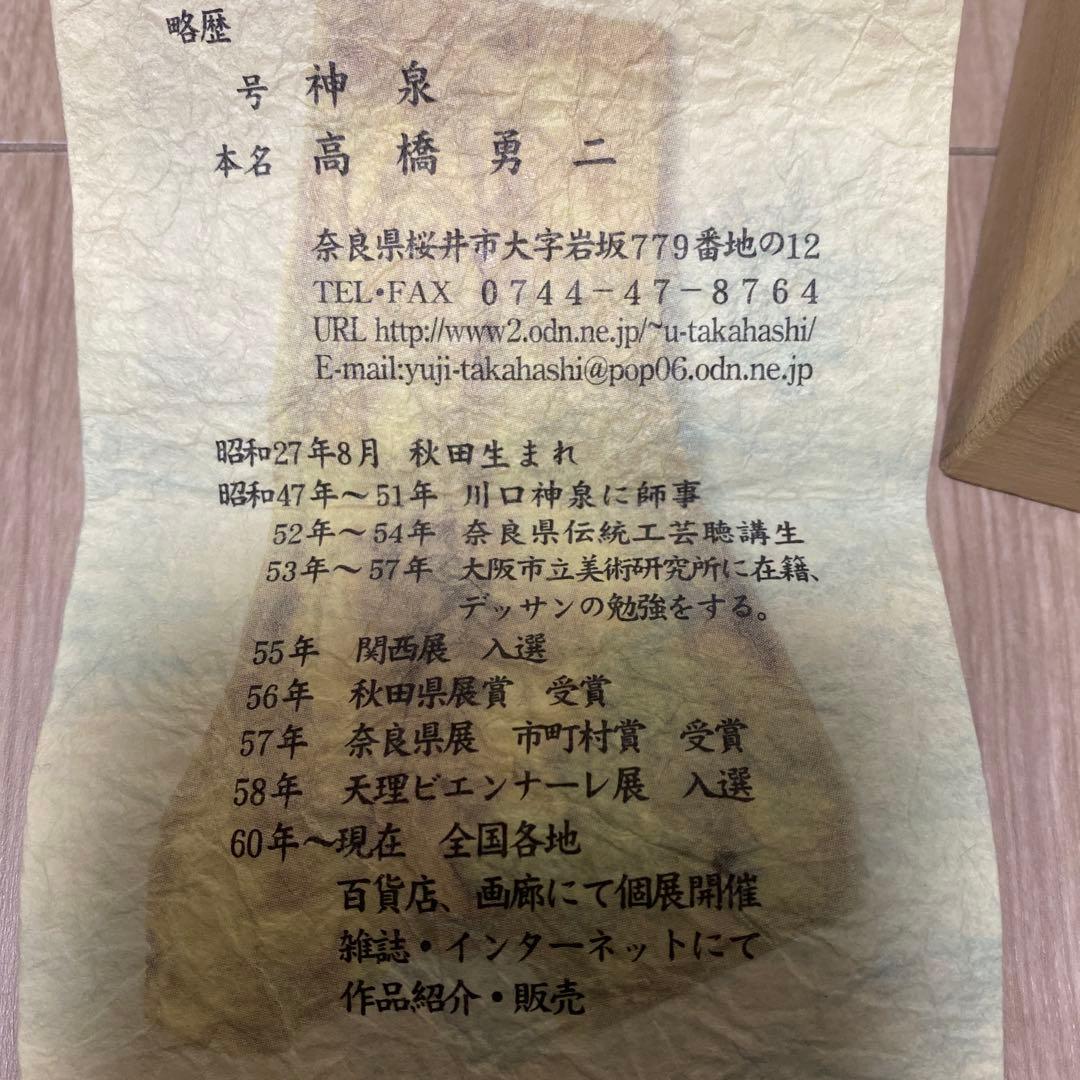 略歴
号 神泉
本名 高橋勇二
奈良県桜井市大字岩坂779番地の12
TEL・FAX 0744－47－8764
URL http://www2.odn.ne.jp/~u-takahashi/
E-mail:yuji-takahashi@pop06.odn.ne.jp
昭和27年8月 秋田生まれ
昭和47年～51年 川口神泉に師事
52年～54年 奈良県伝統工芸聴講生
53年～57年 大阪市立美術研究所に在籍、
デッサンの勉強をする。
55年 関西展 入選
56年 秋田県展賞 受賞
57年 奈良県展 市町村賞 受賞
58年 天理ビエンナーレ展 入選
60年～現在 全国各地
百貨店、画廊にて個展開催
雑誌・インターネットにて
作品紹介・販売